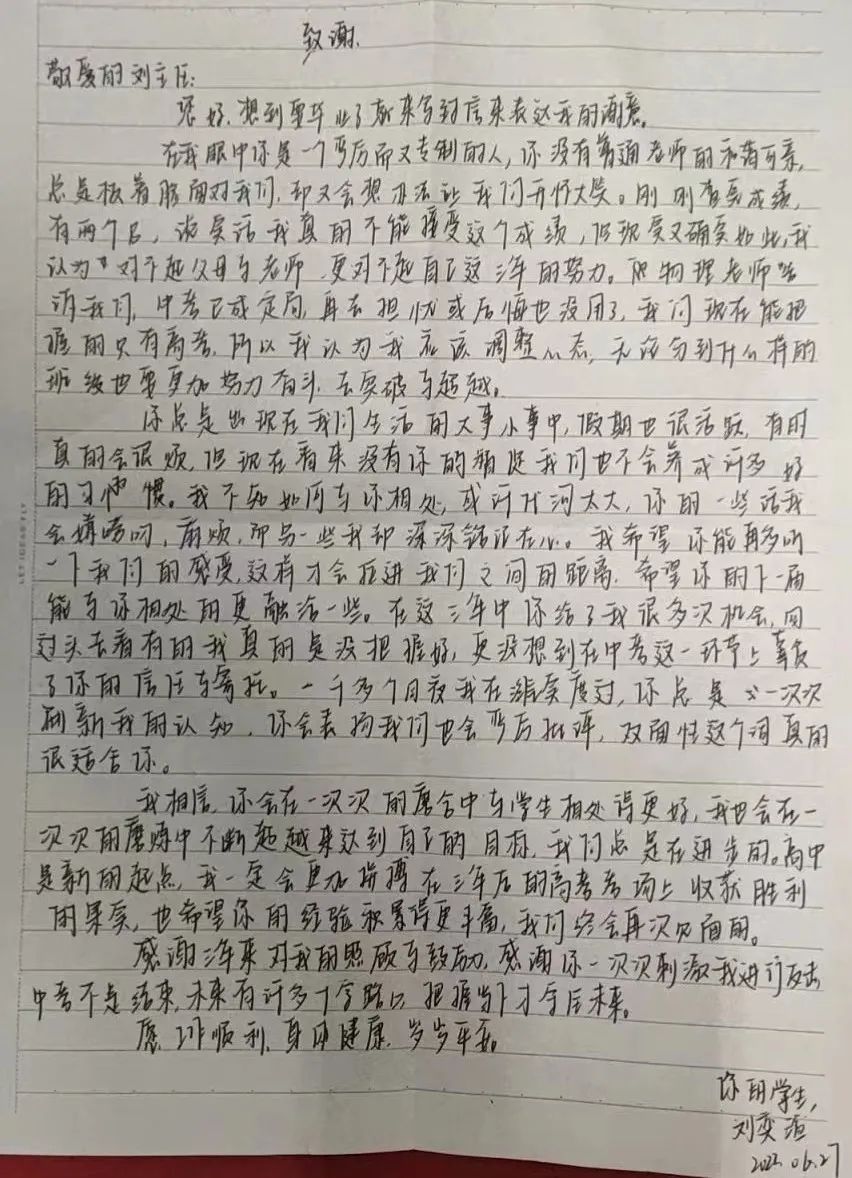 致谢.
敬爱的刘主任:
您好,想到要毕业了都来写封信来表达我的谢意。
在我眼中你是一个严厉而又专制的人,你没有普通老师的和蔼可亲,
总是板着脸面对我们,却又会想办法让我们开怀大笑。刚刚查完成绩,
有两个B,说实话我真的不能接受这个成绩,但现实又确实如此,我
认为对不起父母与老师,更对不起自己这三年的努力。但物理老师告
诉我们,中考已成定局,再去担忧或后悔也没用了,我们现在能把
握的只有高考,所以我认为我应该调整心态,无论分到什么样的
班级也要更加努力奋斗,去突破与超越。
你总是出现在我们生活的大事小事中,假期也很活跃,有时
真的会很烦,但现在看来没有你的督促我们也不会养成许多好
的习惯。我不知如何与你相处,或许代沟太大,你的一些话我
会嫌唠叨,麻烦,而另一些我却深深铭记在心。我希望你能再多听
一下我们的感受,这样才会拉进我们之间的距离,希望你的下一届
能与你相处的更融洽一些。在这三年中你给了我很多次机会,回
过头去看有的我真的是没把握好,更没想到在中考这一环节上辜负
了你的信任与寄托。一千多个日夜我在踏实度过,你总是一次次
刷新我的认知,你会表扬我们也会严厉批评,双面性这个词真的
很适合你。
我相信,你会在一次次的磨合中与学生相处得更好,我也会在一
次次的磨炼中不断超越来达到自己的目标,我们总是在进步的。高中
是新的起点,我一定会更加拼搏在三年后的高考考场上收获胜利
的果实,也希望你的经验积累得更丰富,我们终会再次见面的。
感谢三年来对我的照顾与鼓励,感谢你一次次刺激我进行反击
中考不是结束,未来有许多十字路口,把握当下才会后未来。
愿工作顺利,身体健康,岁岁平安。
你的学生,
刘奕
2022.06.27
LET IDEAS FLY